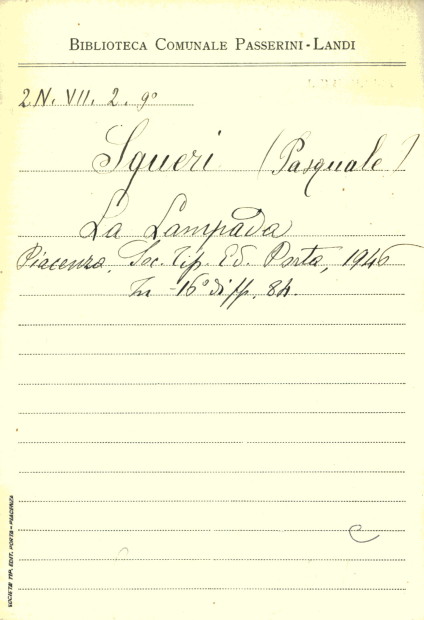 BIBLIOTECA COMUNALE PASSERINI-LANDI
2N. VII. 2. 9°
Squeri (Pasquale)
La Lampada
Piacenza, Soc. Tip. Ed. Porta, 1946
In -16° di pp. 84.
SOCIETÀ TIP. EDIT. PORTA - PIACENZA